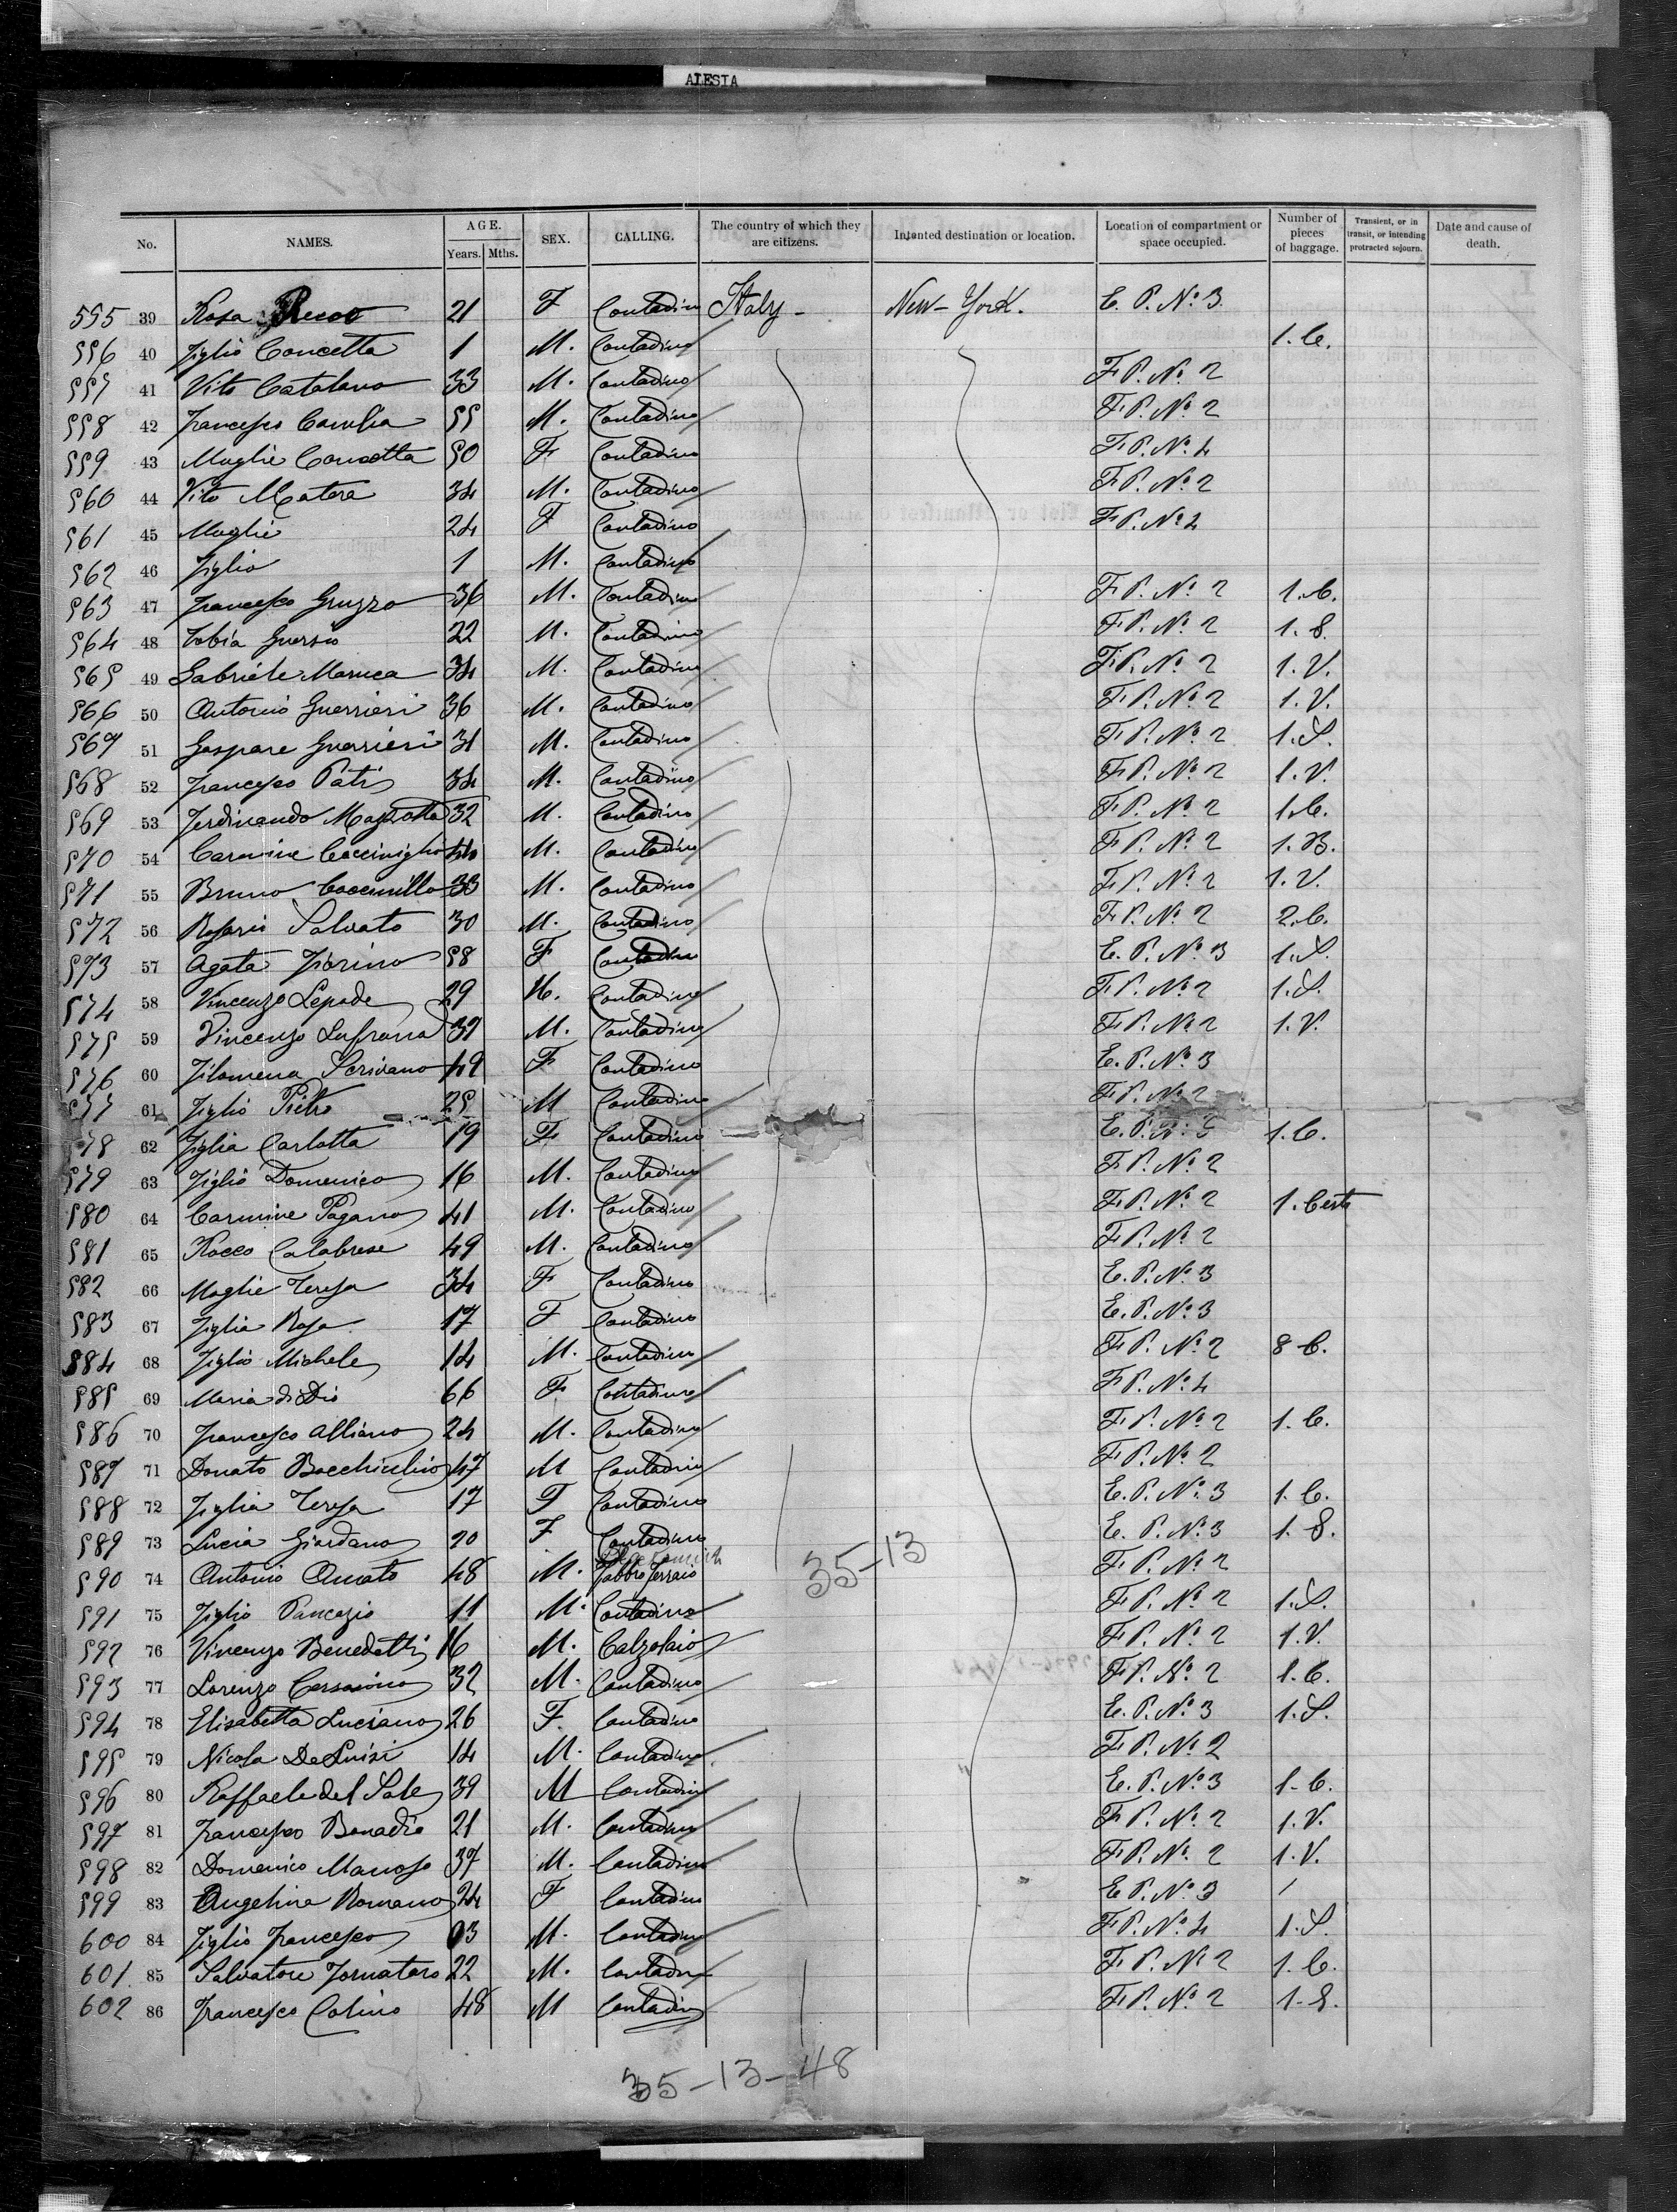 ALESIA
No. NAMES. AGE. Years. Mths. SEX. CALLING. The country of which they are citizens. Intented destination or location. Location of compartment or space occupied. Number of pieces of baggage. Transient, or in transit, or intending protracted sojourn. Date and cause of death.
555 39 Rosa 21 F Contadino Italy - New-York. E. P. No. 3
556 40 Figlio Concetta 1 M. Contadino 1. C.
557 41 Vito Catalano 33 M. Contadino F P. No. 2
558 42 Francesco 55 M. Contadino F P. No. 2
559 43 Moglie Concetta 50 F Contadino F P. No. 4
560 44 Vito Matera 34 M. Contadino F P. No. 2
561 45 Moglie 24 F Contadino F P. No. 4
562 46 Figlio 1 M. Contadino
563 47 Francesco Gruzzo 36 M. Contadino F P. No. 2 1. C.
564 48 Tobia Guersio 22 M. Contadino F P. No. 2 1. S.
565 49 Gabriele Maruca 34 M. Contadino F P. No. 2 1. V.
566 50 Antonio Guerrieri 36 M. Contadino F P. No. 2 1. V.
567 51 Gaspare Guerrieri 31 M. Contadino F P. No. 2 1. S.
568 52 Francesco Pati 34 M. Contadino F P. No. 2 1. V.
569 53 Ferdinando Mazzotta 32 M. Contadino F P. No. 2 1. C.
570 54 Carmine 44 M. Contadino F P. No. 2 1. B.
571 55 Bruno 33 M. Contadino F P. No. 2 1. V.
572 56 Rosario Salvato 30 M. Contadino F P. No. 2 2. C.
573 57 Agata Fiorino 58 F Contadino E. P. No. 3 1. S.
574 58 Vincenzo Lepode 29 M. Contadino F P. No. 2 1. S.
575 59 Vincenzo 37 M. Contadino F P. No. 2 1. V.
576 60 Filomena Scrivano 49 F Contadino E. P. No. 3
577 61 Figlio Pietro 25 M Contadino F P. No. 2
578 62 Figlia Carlotta 19 F Contadino E. P. No. 1. C.
579 63 Figlio Domenico 16 M. Contadino F P. No. 2
580 64 Carmine Pagano 41 M. Contadino F P. No. 2 1. Cesta
581 65 Rocco Calabrese 49 M. Contadino F P. No. 2
582 66 Moglie Teresa 34 F Contadino E. P. No. 3
583 67 Figlia Rosa 17 F Contadino E. P. No. 3
584 68 Figlio Michele 14 M. Contadino F P. No. 2 8 C.
585 69 Maria di Dio 66 F Contadino F P. No. 4
586 70 Francesco Alliano 24 M. Contadino F P. No. 2 1. C.
587 71 Donato Bocchicchio 47 M Contadino F P. No. 2
588 72 Figlia Teresa 17 F Contadino E. P. No. 3 1. C.
589 73 Lucia Giordano 20 F Contadino E. P. No. 3 1. S.
590 74 Antonio Amato 48 M. Blacksmith Fabbro ferraio 35-13 F P. No. 2
591 75 Figlio Pancazio 11 M. Contadino F P. No. 2 1. S.
592 76 Vincenzo Benedetti 16 M. Calzolaio F P. No. 2 1. V.
593 77 Lorenzo 32 M. Contadino F P. No. 2 1. C.
594 78 Elisabetta Luciano 26 F. Contadino E. P. No. 3 1. S.
595 79 Nicola DeLuisi 14 M. Contadino F P. No. 2
596 80 Raffaele del Sale 39 M Contadino E. P. No. 3 1. C.
597 81 Francesco Benadio 21 M. Contadino F P. No. 2 1. V.
598 82 Domenico Manoso 37 M. Contadino F P. No. 2 1. V.
599 83 Angelina Romano 24 F Contadino E P. No. 3 /
600 84 Figlio Francesco 03 M. Contadino F P. No. 4 1. S.
601 85 Salvatore Fornataro 22 M. Contadino F P. No. 2 1. C.
602 86 Francesco Colino 48 M Contadino F P. No. 2 1. S.
35-13-48